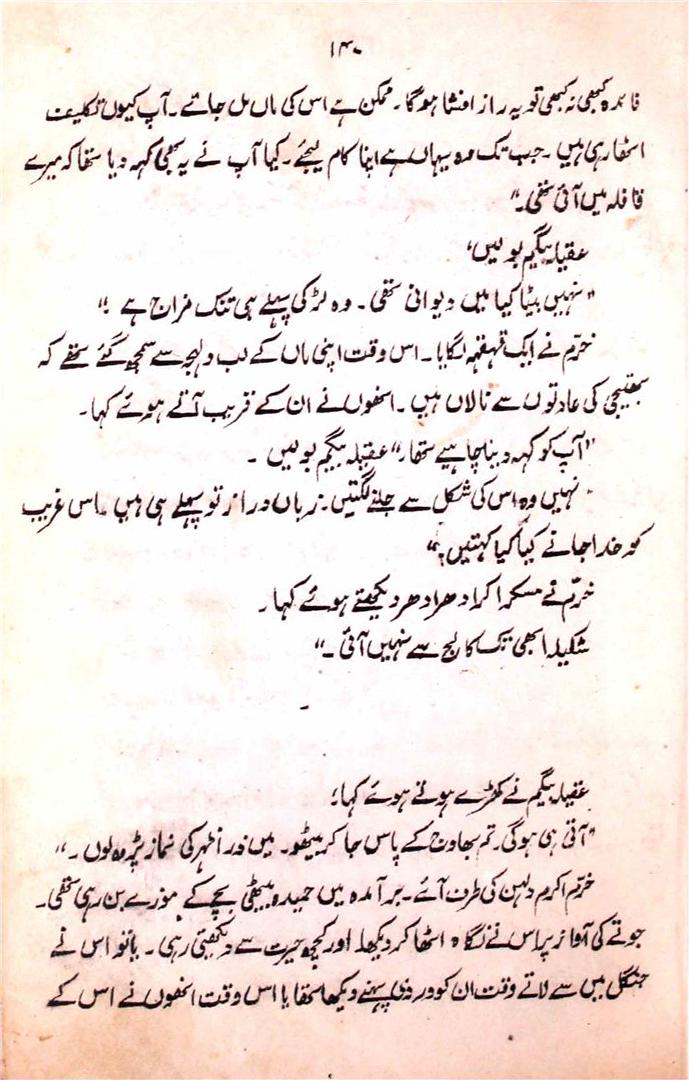 ۱۴۰
فائدہ کبھی نہ کبھی تو یہ راز افشا ہوگا۔ ممکن ہے اس کی ماں مل جائے۔ آپ کیوں تکلیف
اٹھا رہی ہیں۔ جب تک وہ یہاں ہے اپنا کام لیجئے۔ کیا آپ نے یہ بھی کہہ دیا تھا کہ میرے
قافلہ میں آئی تھی۔"
عقیلہ بیگم بولیں،
"نہیں بیٹا کیا میں دیوانی تھی۔ وہ لڑکی پہلے ہی تنک مزاج ہے !"
خرّم نے ایک قہقہہ لگایا۔ اس وقت اپنی ماں کے لب و لہجہ سے سمجھ گئے تھے کہ
بھتیجی کی عادتوں سے نالاں ہیں۔ انھوں نے ان کے قریب آتے ہوئے کہا۔
"آپ کو کہہ دینا چاہیے تھا۔" عقیلہ بیگم بولیں ۔
"نہیں وہ اس کی شکل سے جلنے لگتیں۔ زبان دراز تو پہلے ہی ہیں ۔ اس غریب
کو خدا جانے کیا کیا کہتیں؟"
خرّم نے مسکرا کر ادھر ادھر دیکھتے ہوئے کہا۔
شکیلہ ابھی تک کالج سے نہیں آئی ۔"
عقیلہ بیگم نے کھڑے ہوتے ہوئے کہا؛
"آتی ہی ہوگی۔ تم بھاوج کے پاس جا کر بیٹھو۔ میں ذرا ظہر کی نماز پڑھ لوں ۔"
خرّم اکرم دلہن کی طرف آئے۔ برآمدہ میں حمیدہ بیٹھی بچے کے موزے بن رہی تھی۔
جوتے کی آواز پر اس نے نگاہ اٹھا کر دیکھا اور کچھ حیرت سے دیکھتی رہی۔ یا تو اس نے
جنگل میں سے لاتے وقت ان کو وردی پہنے دیکھا تھا یا اس وقت انھوں نے اس کے